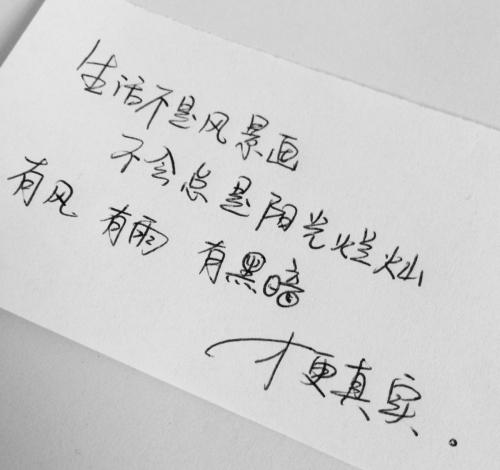 生活不是风景画
不会总是阳光烂灿
有风 有雨 有黑暗
才更真实.